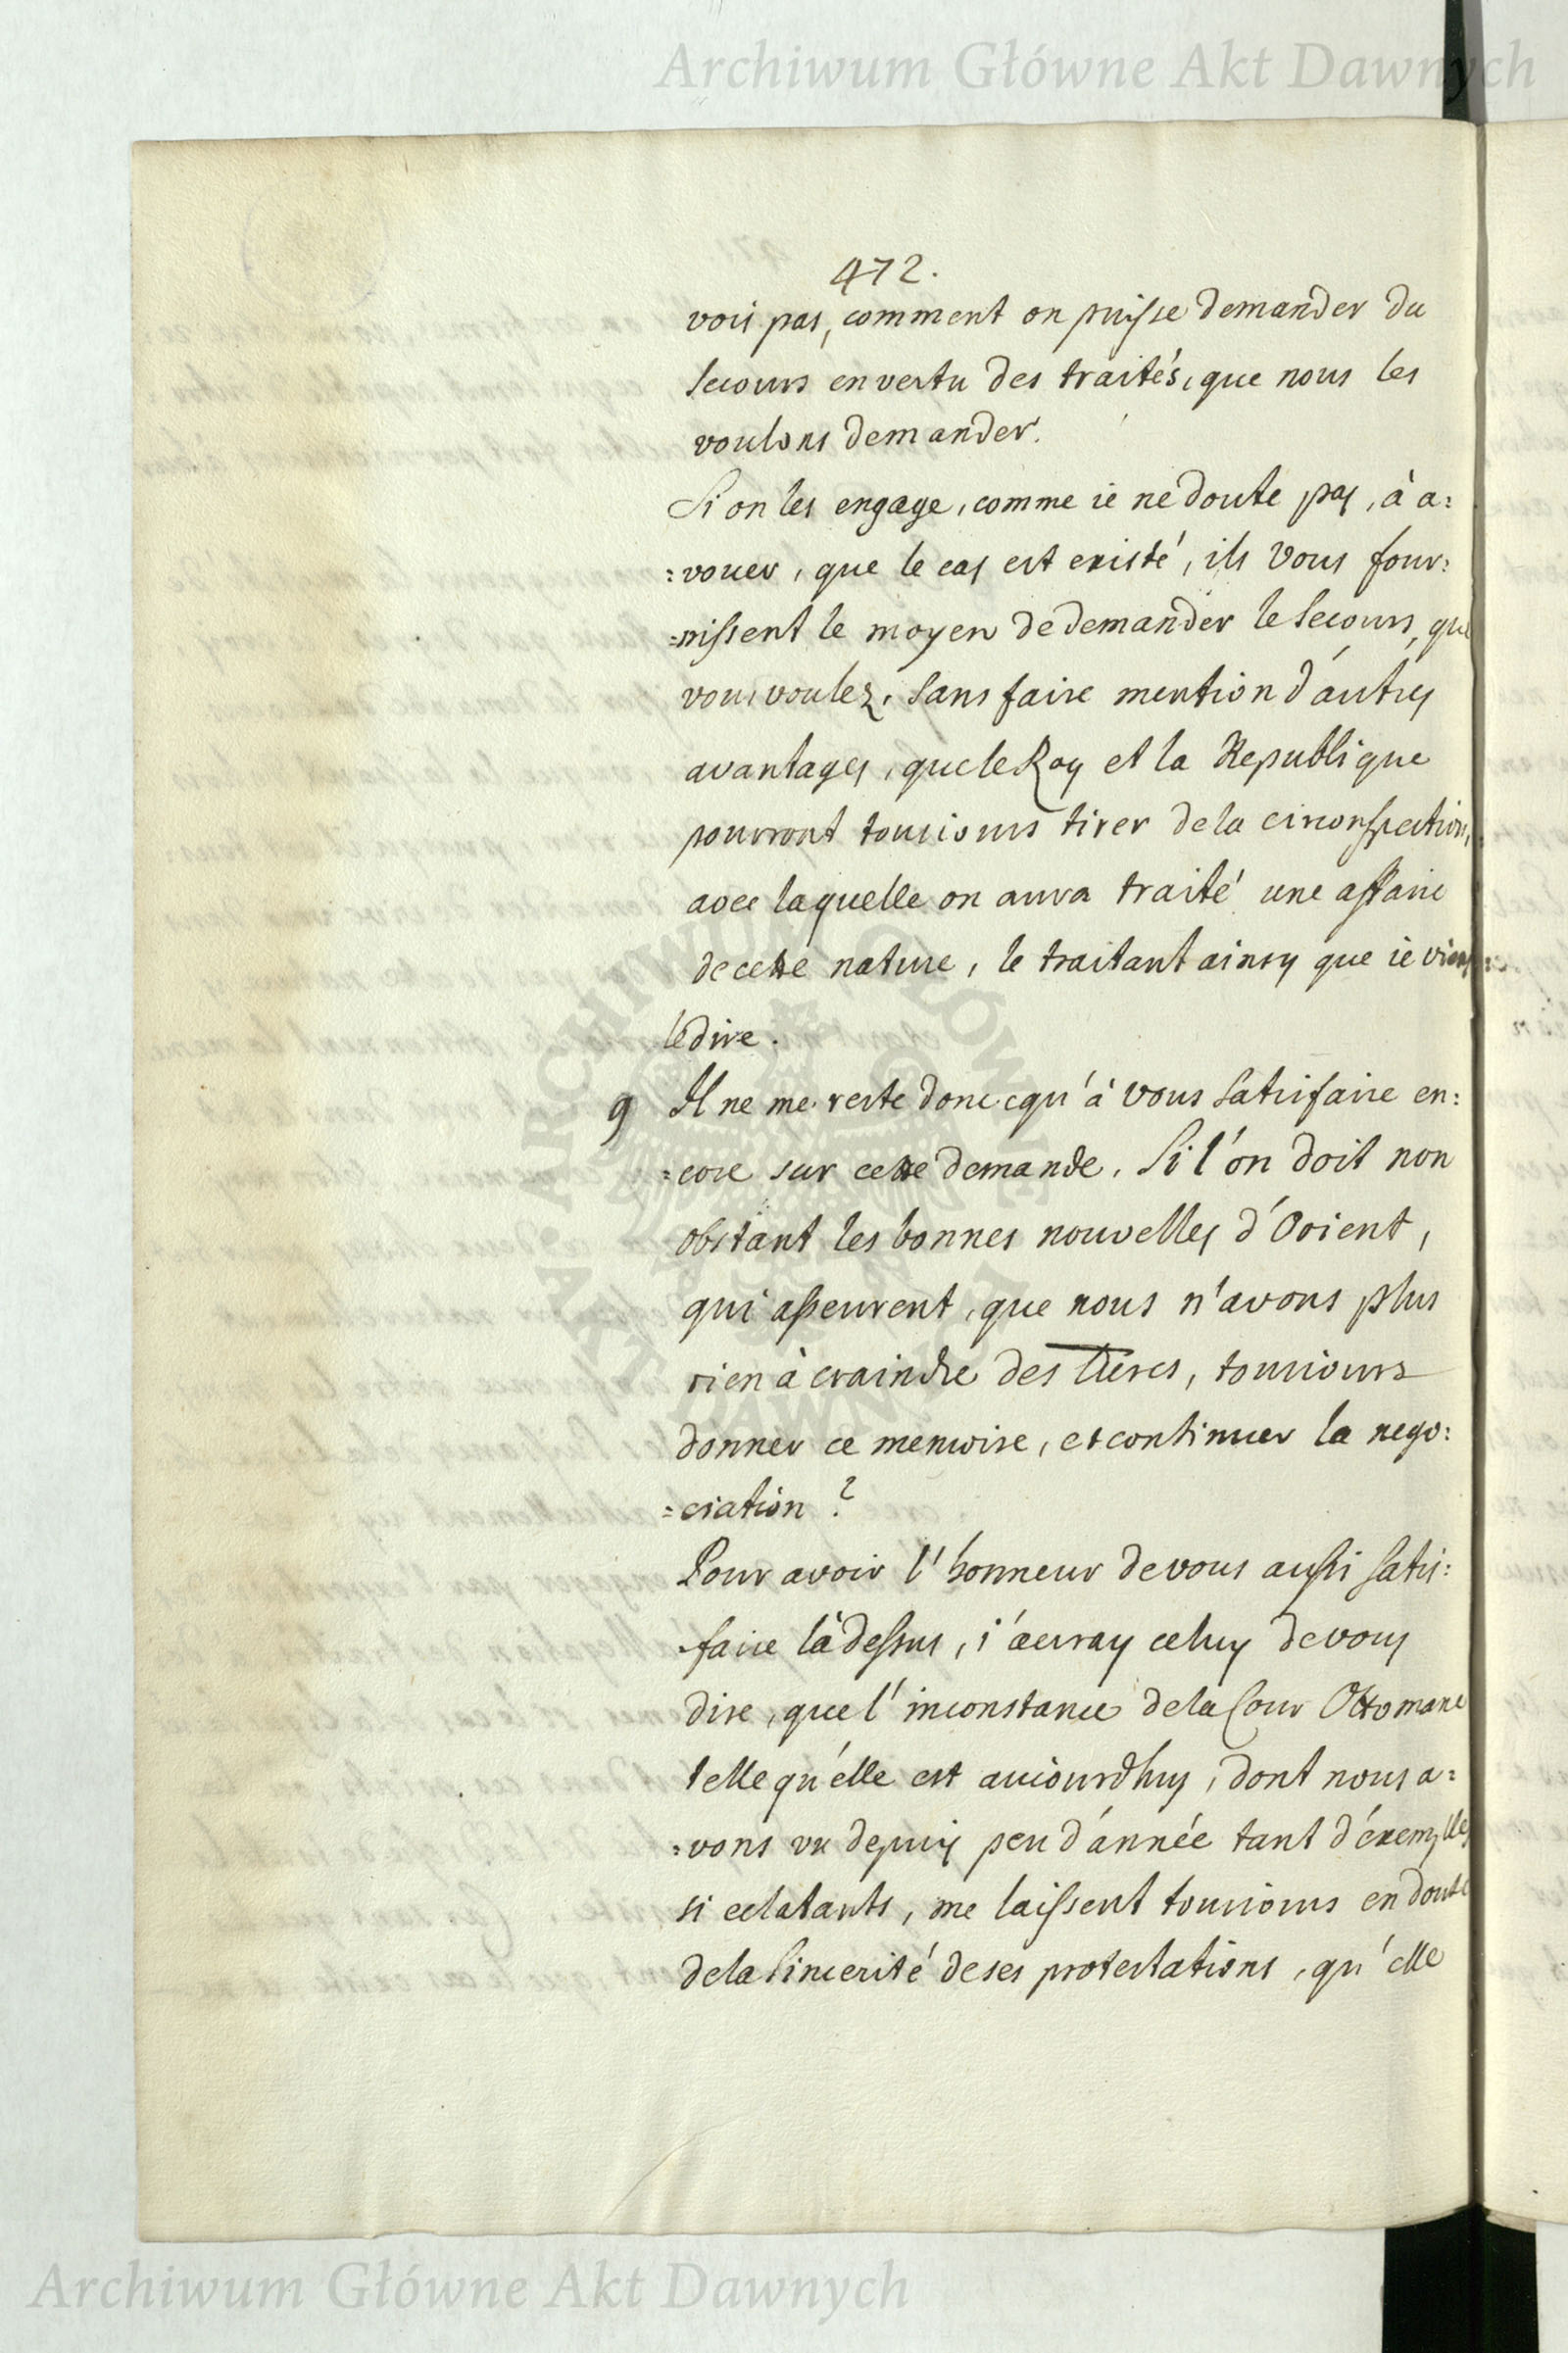 Archiwum Główne Akt Dawnych
472.
vois pas, comment on puisse demander du
secours en vertu des traités, que nous les
voulons demander.
Si on les engage, comme ie ne doute pas, à a:
=vouer, que le cas est existé, ils vous four:
=nissent le moyen de demander le secours, que
vous voulez, sans faire mention d'autres
avantages, que le Roy et la Republique
pourront tousiours tirer de la circonspection,
avec laquelle on aura traité une affaire
de cette nature, le traitant ainsy que ie viens
le dire.
9 Il ne me reste donc qu'à vous satisfaire en:
=core sur cette demande, Si l'on doit non
obstant les bonnes nouvelles d'Orient,
qui asseurent, que nous n'avons plus
rien à craindre des Tures, tousiours
donner ce memoire, et continuer la nego:
=ciation?
Pour avoir l'honneur de vous aussi satis:
faire là dessus, i'auray celuy de vous
dire, que l'inconstance de la Cour Ottomane
telle qu'elle est auiourdhuy, dont nous a:
=vons vu depuis peu d'année tant d'exemples
si eclatants, me laissent tousiours en doute
de la sincerité de ses protestations, qu'elle
ARCHIWUM GŁÓWNE AKT DAWNYCH
Archiwum Główne Akt Dawnych